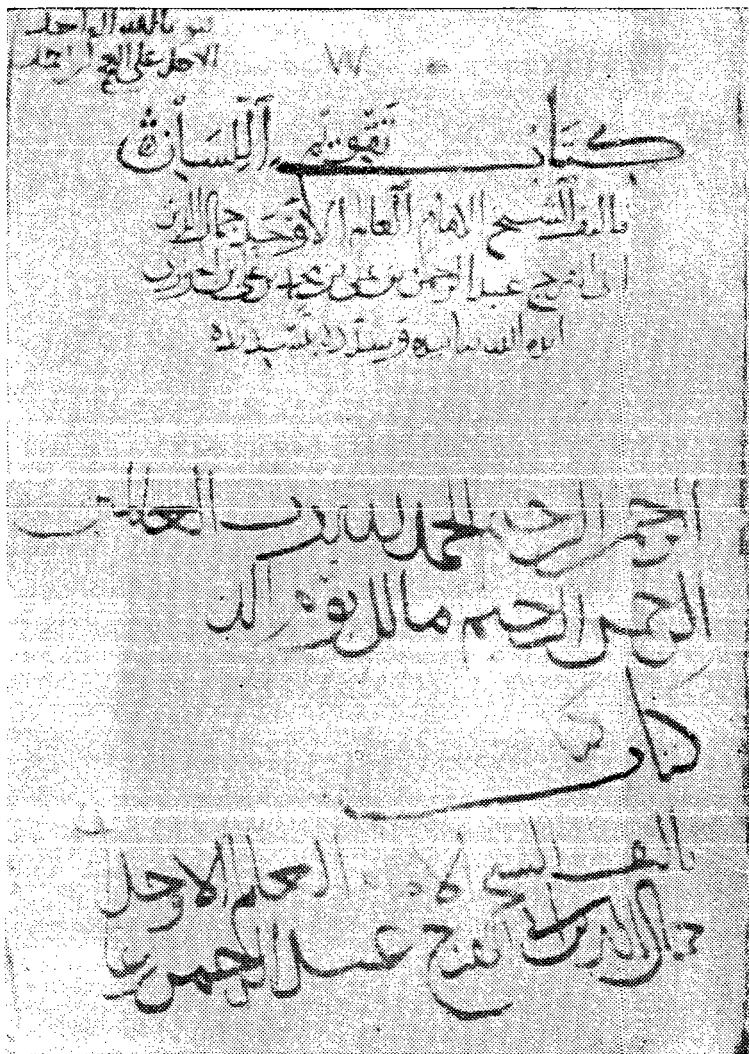 الاجل علي
كتاب تقويم اللسان
تاليف الشيخ الامام العالم الاوحد جمال الدين
ابي الفرج عبد الرحمن بن علي بن محمد بن علي بن الجوزي
ايده الله بتاييده
الرحمن الرحيم الحمد لله رب العالمين
الرحمن الرحيم مالك يوم الدين
كتاب
تاليف الشيخ الامام العالم الاوحد
جمال الدين ابي الفرج عبد الرحمن بن